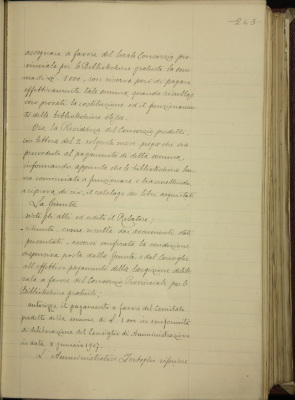 263
assegnare a favore del locale Consorzio pro-
vinciale per le Biblioteche gratuite la som-
ma di L. 1000, con riserva però di pagare
effettivamente tale somma, quando risultas-
sero provate la costituzione ed il funzionamen-
to delle biblioteche stesse.
Ora la Presidenza del Consorzio predetto,
con lettera del 2 volgente mese prega che sia
provveduto al pagamento di detta somma,
informando appunto che le biblioteche han-
no cominciato a funzionare e trasmettendo,
a riprova di ciò, il catalogo dei libri acquistati
La Giunta
visti gli atti ed udito il Relatore;
ritenuto, come risulta dai documenti stati
presentati, essersi verificata la condizione
sospensiva posta dalla Giunta e dal Consiglio
all'effettivo pagamento della elargizione delibe-
rata a favore del Consorzio Provinciale per le
Biblioteche gratuite;
autorizza il pagamento a favore del Comitato
predetto della somma di L. 1000 in conformità
di deliberazione del Consiglio di Amministrazione
in data 8 gennaio 1907.
L'Amministratore riferisce